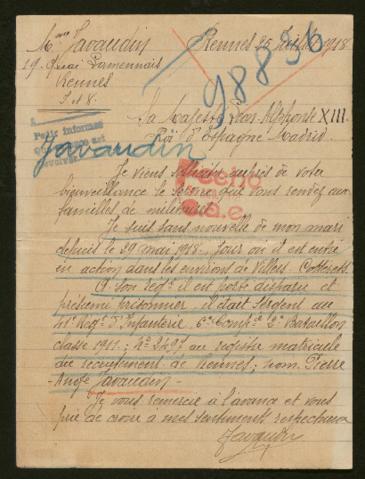 Mme Javaudin Rennes 25 Juillet 1918
19 Quai Lamennais
Rennes
I et V.
98836
Sa Majesté Don Alphonse XIII
Roi d'Espagne Madrid.
Petit informat
Javaudin
Je viens solliciter auprès de votre
bienveillance le service que vous rendez aux
familles de militaires.
Je suis sans nouvelle de mon mari
depuis le 29 mai 1918. Jour où il est entré
en action dans les environs de Villers Cotterets.
A son Regt il est porté disparu et
présumé prisonnier, il était Sergent au
41e Regt d'Infanterie 6e Compie 2e Bataillon
classe 1911; No au registre matricule
du recrutement de Rennes; nom, Pierre
Ange Javaudin -
Je vous remercie à l'avance et vous
prie de croire à mes sentiments respectueux
Javaudin